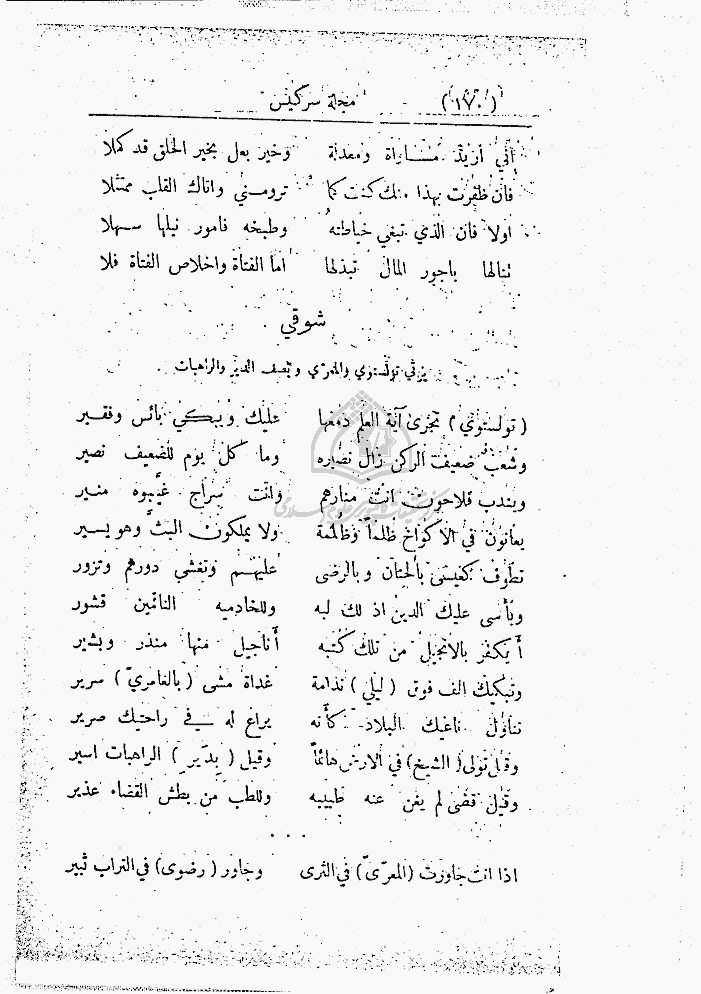 (١٧٠) مجلة سركيس
اني اريد مساراة ومعدلة وخير بعل بخير الخلق قد كملا
فان ظفرت بهذا منك كنت كما ترومني واتاك القلب ممتثلا
اولا فان الذي تبغي خياطته وطبخه فامور نيلها سهلا
تنالها باجور المال تبذلها اما الفتاة واخلاص الفتاة فلا
شوقي
يرثي تولستوي والمعري ويصف الدير والراهبات
(تولستوي) تجري آية العلم دمعها عليك ويبكي بائس وفقير
وشعب ضعيف الركن زال نصيره وما كل يوم للضعيف نصير
ويندب فلاحون انت منارهم وانت سراج غيبوه منير
يعانون في الاكواخ ظلماً وظلمة ولا يملكون البث وهو يسير
تطوف كعيسى بالحنان وبالرضى عليهم وتغشي دورهم وتزور
ويأسى عليك الدين اذ لك لبه وللخادميه الناقمين قشور
أيكفر بالانجيل من تلك كتبه أناجيل منها منذر وبشير
وتبكيك الف فوق (ليلى) ندامة غداة مشى (بالعامريّ) سرير
تناول ناعيك البلاد كأنه يراع له في راحتيك صرير
وقيل تولى (الشيخ) في الارض هائماً وقيل (بدَير) الراهبات اسير
وقيل قضى لم يغن عنه طبيبه وللطب من بطش القضاء عذير
. . .
اذا انت جاورت (المعرّي) في الثرى وجاور (رضوى) في التراب ثبير